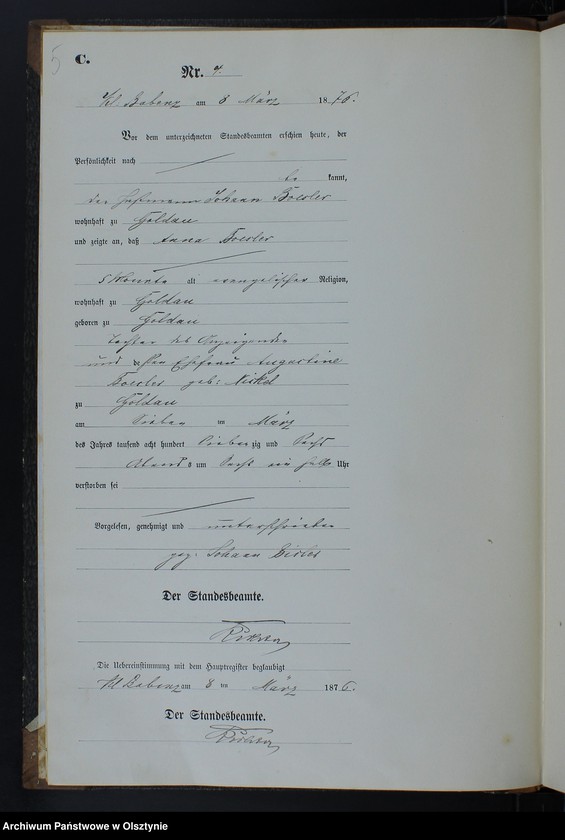 5
C.
Nr. 4.
Kl Babenz am 8 März 1876.
Vor dem unterzeichneten Standesbeamten erschien heute, der
Persönlichkeit nach
be kannt,
der Hofmann Johann Boesler
wohnhaft zu Goldau
und zeigte an, daß Anna Boesler
5 Monate alt evangelischer Religion,
wohnhaft zu Goldau
geboren zu Goldau
Tochter des Anzeigenden
und Ehefrau Augustine
Boesler geb: Nickel
zu Goldau
am Sieben ten März
des Jahres tausend acht hundert siebenzig und Sechs
Abends um Sechs ein halb Uhr
verstorben sei
Vorgelesen, genehmigt und unterschrieben
gez. Johann
Der Standesbeamte.
Die Uebereinstimmung mit dem Hauptregister beglaubigt
Kl Babenz am 8 ten März 1876.
Der Standesbeamte.
Archiwum Państwowe w Olsztynie